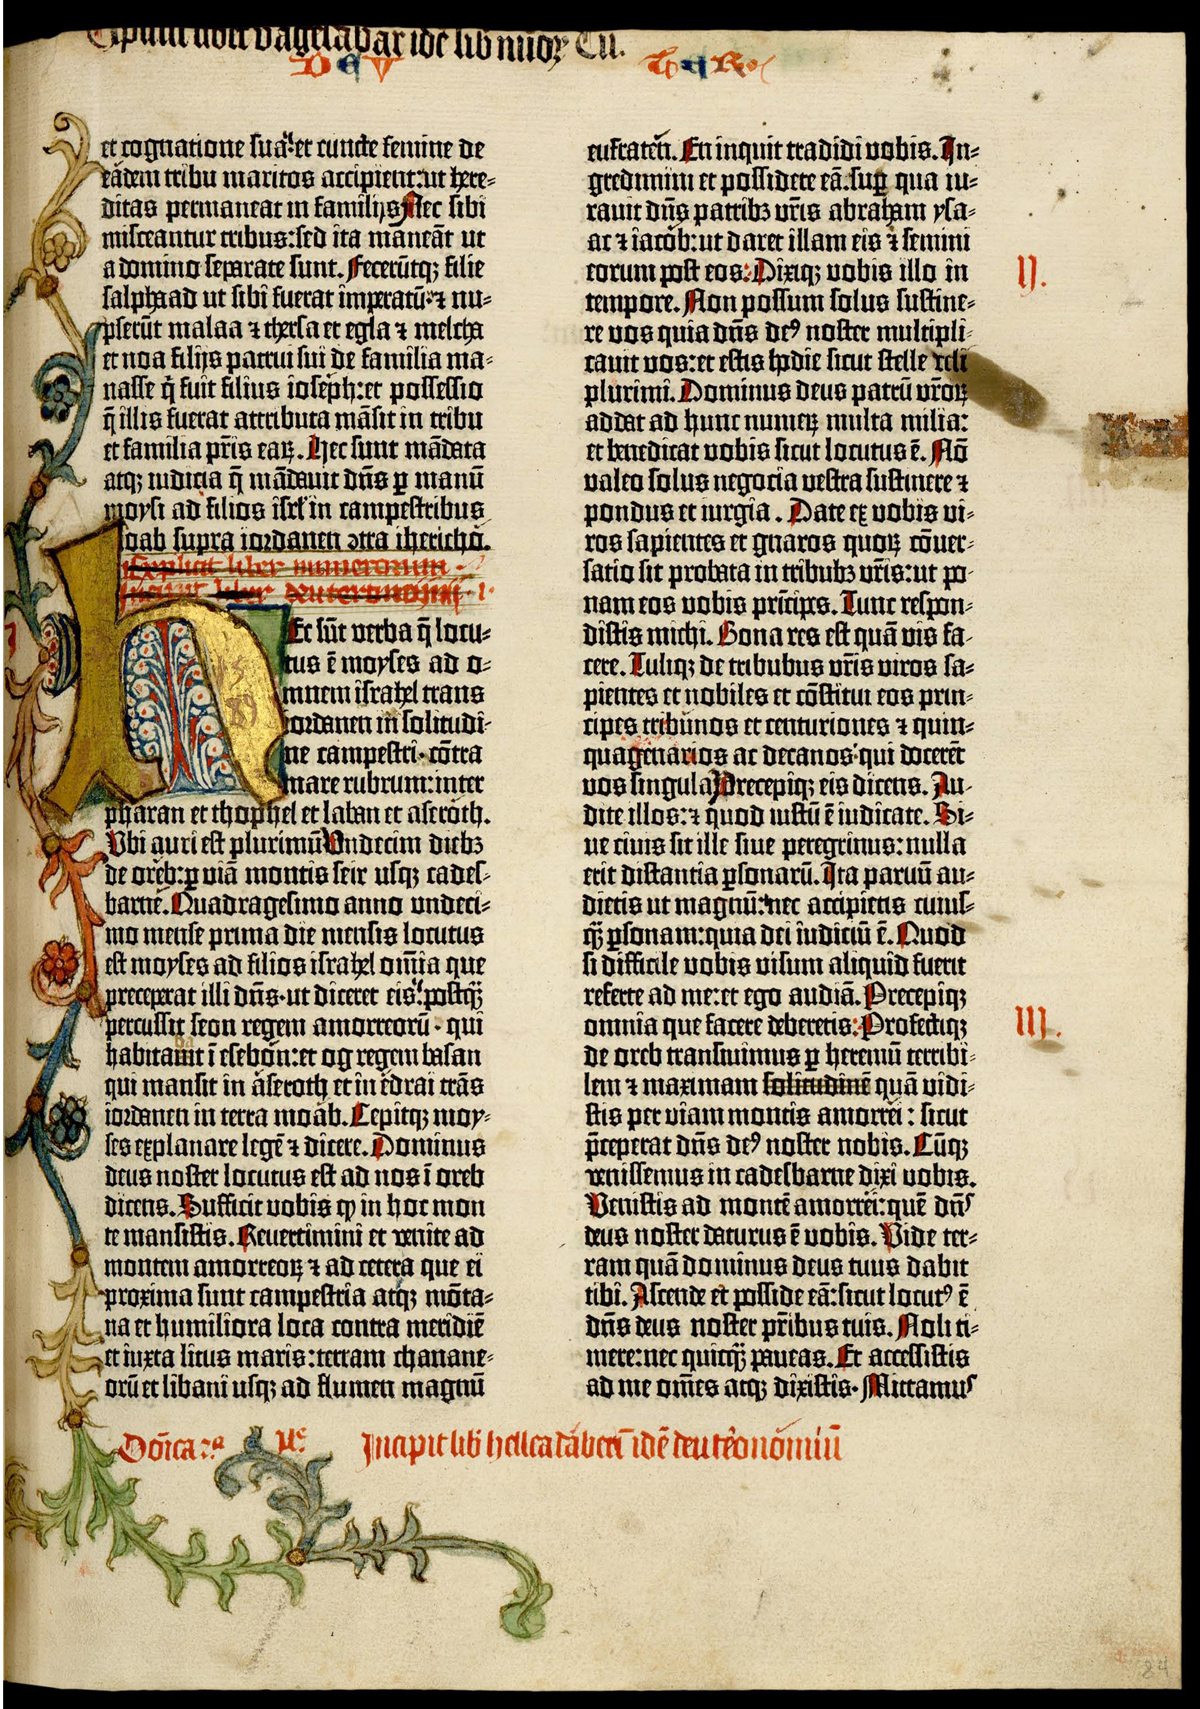 Explicit liber vagedabar id est lib nūō℞ Cū.
D E V
T E R O
et cognatione sua: et cuncte femine de
eādem tribu maritos accipient: ut here-
ditas permaneat in familijs Nec sibi
misceantur tribus: sed ita maneāt ut
a domino separate sunt. Fecerūtqꝫ filie
salphaad ut sibi fuerat imperatū: ⁊ nu-
pserūt malaa ⁊ thersa et egla ⁊ melcha
et noa filijs patrui sui de familia ma-
nasse q̄ fuit filius ioseph: et possessio
q̄ illis fuerat attributa māsit in tribu
et familia pr̄is eaꝝ. Hec sunt mādata
atqꝫ iudicia q̄ mādauit dn̄s ꝑ manū
moysi ad filios isrl̄ in campestribus
moab supra iordanen ↄtra ihericho.
Explicit liber numerorum.
Incipit liber deuteronomij. 1.
H
Ec sūt verba q̄ locu-
tus ē moyses ad o-
mnem israhel trans
iordanen in solitudi-
ne campestri. cōtra
mare rubrum: inter
pharan et thophel et laban et aseroth.
Vbi auri est plurimū Vndecim diebꝫ
de oreb: ꝑ viā montis seir usqꝫ cades-
barne. Quadragesimo anno vndeci-
mo mense prima die mensis locutus
est moyses ad filios israhel om̄ia que
preceperat illi dn̄s. ut diceret eis: postq̄ꝫ
percussit seon regem amorreorū. qui
habitauit ī esebon: et og regem basan
qui mansit in aseroth et in edrai trās
iordanen in terra moab. Cepitqꝫ moy-
ses explanare legē ⁊ dicere. Dominus
deus noster locutus est ad nos ī oreb
dicens. Sufficit vobis ꝙ in hoc mon
te mansistis. Reuertimini et venite ad
montem amorreoꝝ ⁊ ad cetera que ei
proxima sunt campestria atqꝫ mōta-
na et humiliora loca contra meridiē
et iuxta litus maris: terram chanane-
orū et libani usqꝫ ad flumen magnū
eufraten. En inquit tradidi vobis. In-
gredimini et possidete eā: sup̄ qua iu-
rauit dn̄s patribꝫ vr̄is abraham ysa-
ac ⁊ iacob: ut daret illam eis ⁊ semini
eorum post eos: Dixiqꝫ vobis illo in
tempore. Non possum solus sustine-
re vos quia dn̄s deꝰ noster multipli-
cauit vos: et estis hodie sicut stelle celi
plurimi. Dominus deus patrū vr̄oꝝ
addat ad hunc numeꝝ multa milia:
et benedicat vobis sicut locutus ē. Nō
valeo solus negocia vestra sustinere ⁊
pondus et iurgia. Date ex vobis vi-
ros sapientes et gnaros quoꝝ cōuer-
satio sit probata in tribubꝫ vr̄is: ut po-
nam eos vobis prīcipes. Tunc respon-
distis michi. Bona res est quā vis fa-
cere. Tuliqꝫ de tribubus vr̄is viros sa-
pientes et nobiles et cōstitui eos prin-
cipes tribunos et centuriones ⁊ quin-
quagenarios ac decanos: qui docerēt
vos singula Precepiqꝫ eis dicens. Au-
dite illos: ⁊ quod iustū ē iudicate. Si-
ue ciuis sit ille siue peregrinus: nulla
erit distantia ꝑsonarū. Ita paruū au-
dietis ut magnū: nec accipietis cuius-
q̄ꝫ ꝑsonam: quia dei iudiciū ē. Quod
si difficile vobis visum aliquid fuerit
referte ad me: et ego audiā. Precepiqꝫ
omnia que facere deberetis: Profectiqꝫ
de oreb transiuimus ꝑ heremū terribi-
lem ⁊ maximam solitudinē quā vidi-
stis per viam montis amorrei: sicut
p̄ceperat dn̄s deꝰ noster nobis. Cūqꝫ
venissemus in cadesbarne dixi vobis.
Venistis ad montē amorrei: quē dn̄s
deus noster daturus ē vobis. Vide ter-
ram quā dominus deus tuus dabit
tibi. Ascende et posside eā: sicut locutꝰ ē
dn̄s deus noster pr̄ibus tuis. Noli ti-
mere: nec quicq̄ꝫ paueas. Et accessistis
ad me om̄es atqꝫ dixistis. Mittamus
II.
III.
Incipit lib̄ helleadabarim idē deuteronomiū
84